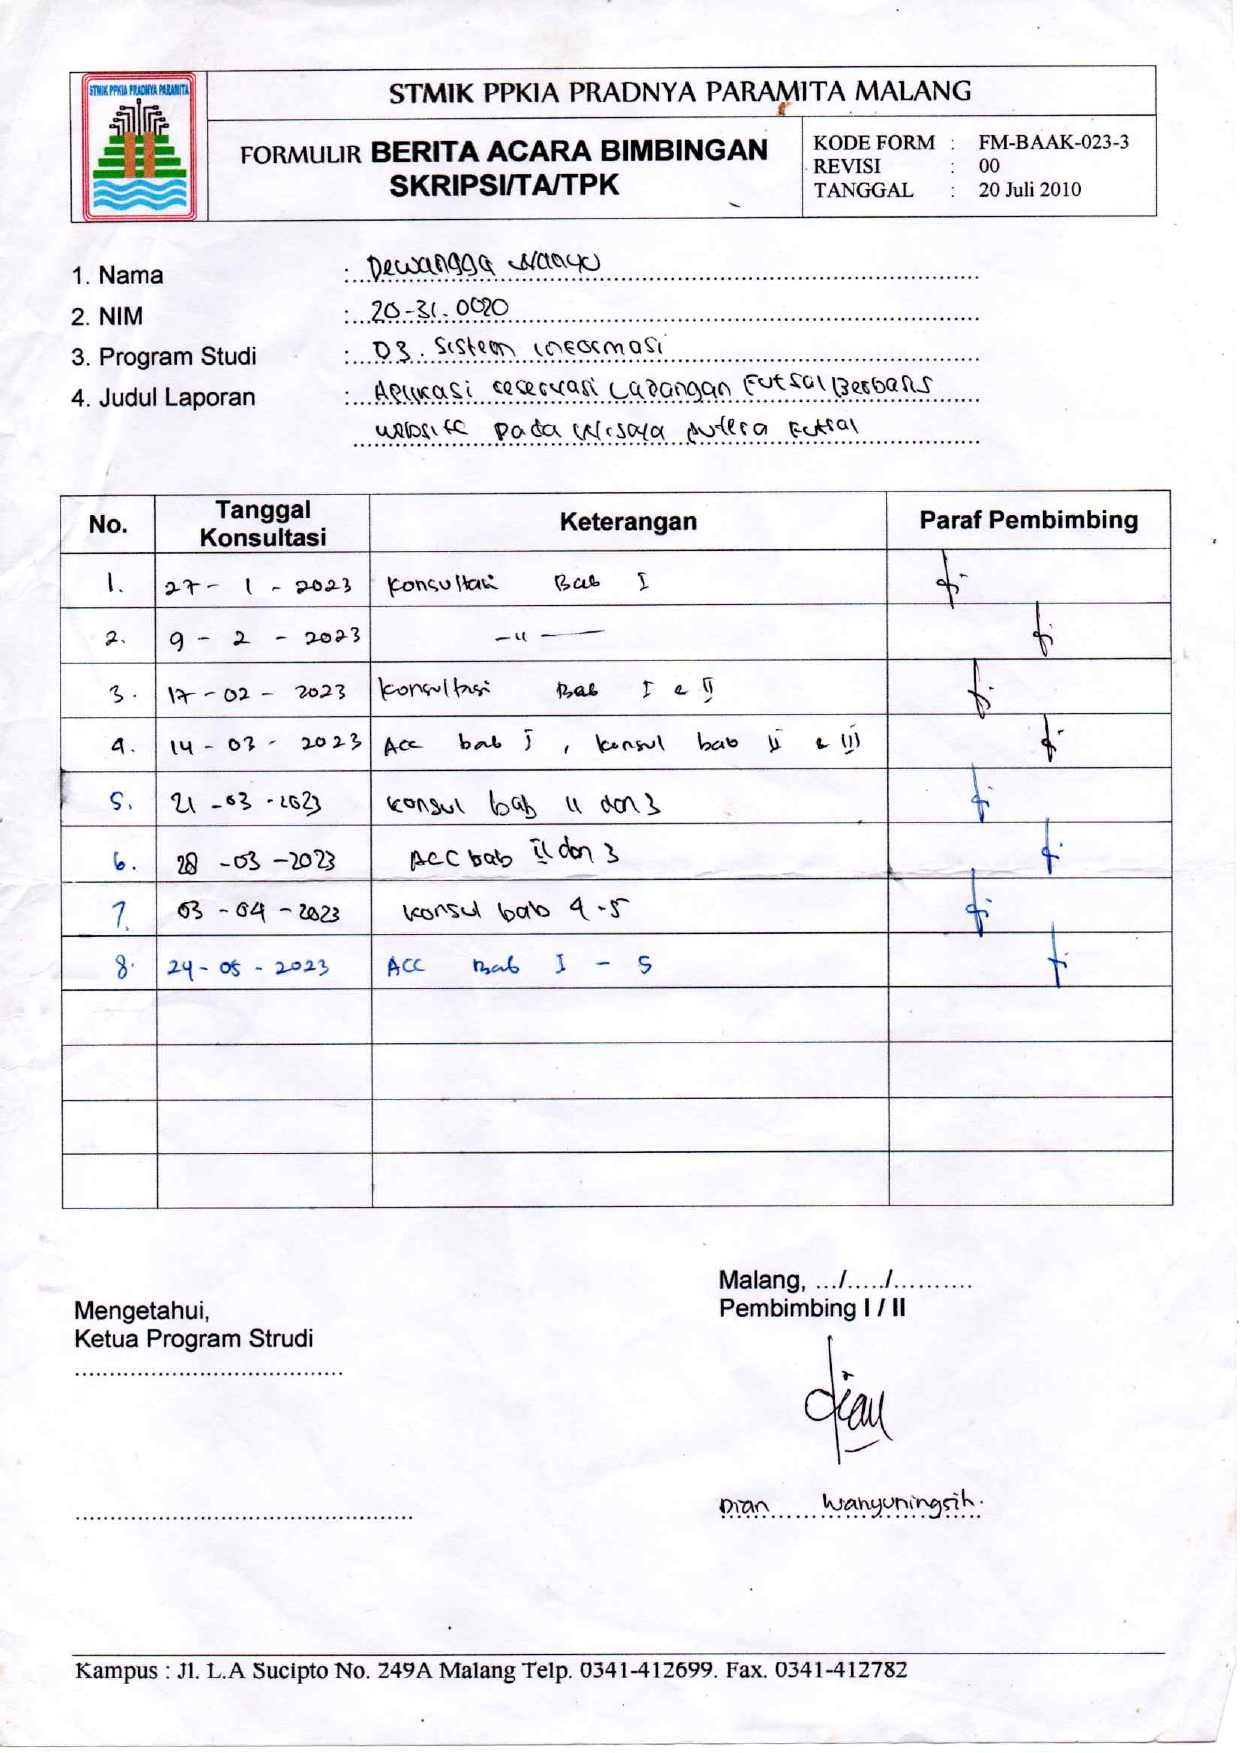 STMIK PPKIA PRADNYA PARAMITA
STMIK PPKIA PRADNYA PARAMITA MALANG
FORMULIR BERITA ACARA BIMBINGAN
SKRIPSI/TA/TPK
KODE FORM : FM-BAAK-023-3
REVISI : 00
TANGGAL : 20 Juli 2010
1. Nama : Dewangga Wahyu
2. NIM : 20.31.0020
3. Program Studi : D3. Sistem informasi
4. Judul Laporan : Aplikasi reservasi Lapangan Futsal Berbasis
website pada Wijaya putera Futsal
No. Tanggal Konsultasi Keterangan Paraf Pembimbing
1. 27 - 1 - 2023 Konsultasi Bab I
2. 9 - 2 - 2023 -"-
3. 17 - 02 - 2023 Konsultasi Bab I & II
4. 14 - 03 - 2023 Acc bab I, konsul bab II & III
5. 21 - 03 - 2023 konsul bab II dan 3
6. 28 - 03 - 2023 ACC bab II dan 3
7. 03 - 04 - 2023 konsul bab 4 - 5
8. 24 - 05 - 2023 ACC Bab I - 5
Malang, .../...../..........
Mengetahui,
Pembimbing I / II
Ketua Program Strudi
Dian
Dian Wahyuningsih.
Kampus : Jl. L.A Sucipto No. 249A Malang Telp. 0341-412699. Fax. 0341-412782